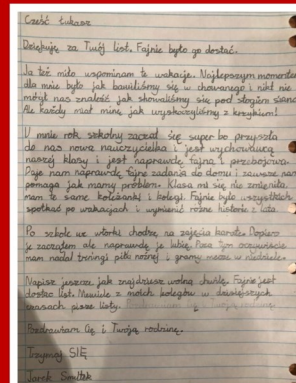 Cześć Łukasz
Dziękuję za Twój list. Fajnie było go dostać.
Ja też miło wspominam te wakacje. Najlepszym momentem
dla mnie było jak bawiliśmy się w chowanego i nikt nie
mógł nas znaleść jak schowaliśmy się pod stogiem siana
Ale każdy miał minę jak wyskoczyliśmy z krzykiem!
U mnie rok szkolny zaczął się super bo przyszła
do nas nowa nauczycielka i jest wychowawcą
naszej klasy i jest naprawdę fajna i przebojowa.
Daje nam naprawdę fajne zadania do domu i zawsze nam
pomaga jak mamy problem. Klasa mi się nie zmieniła,
mam te same koleżanki i kolegi. Fajnie było wszystkich
spotkać po wakacjach i wymienić różne historie z lata.
Po szkole we wtorki chodzę na zajęcia karate. Dopiero
je zacząłem ale naprawdę je lubię. Poza tym oczywiście
mam nadal treningi piłki nożnej i gramy mecze w niedziele.
Napisz jeszcze, jak znajdziesz wolną chwilę. Fajnie jest
dostać list. Niewiele z moich kolegów w dzisiejszych
czasach pisze listy.
Pozdrawiam Cię i Twoją rodzinę.
Trzymaj SIĘ
Jarek Smułek